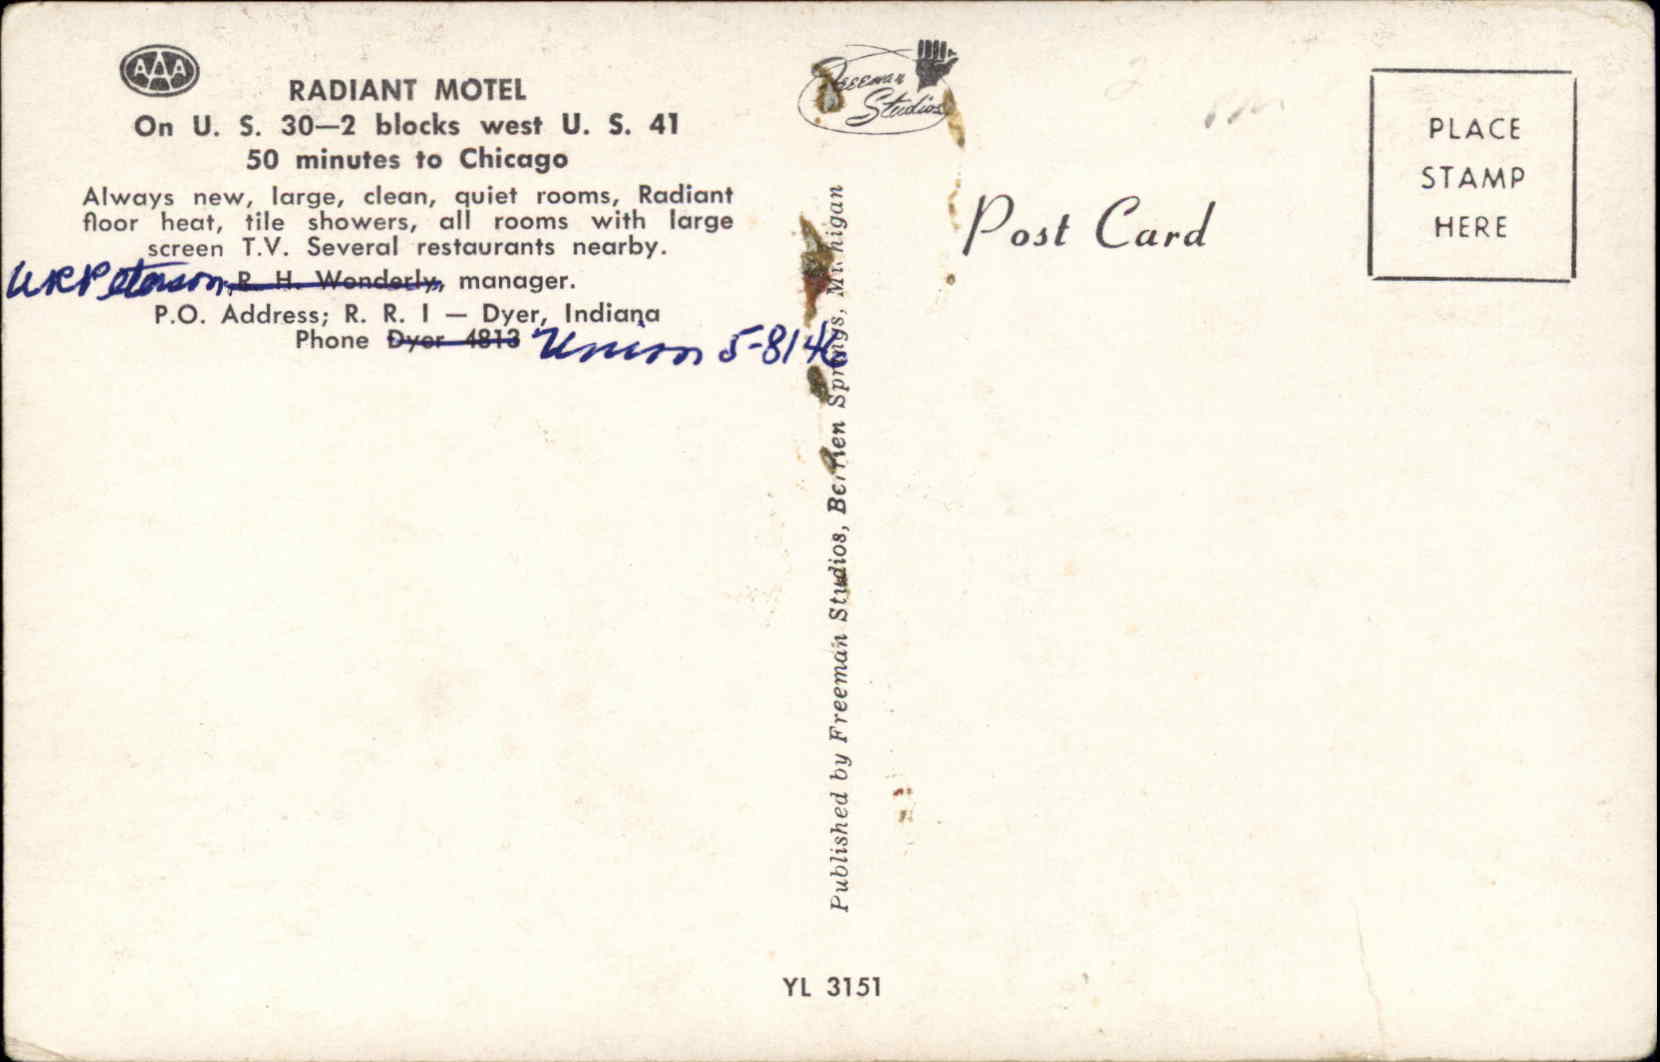 AAA
RADIANT MOTEL
On U. S. 30—2 blocks west U. S. 41
50 minutes to Chicago
Always new, large, clean, quiet rooms, Radiant
floor heat, tile showers, all rooms with large
screen T.V. Several restaurants nearby.
Peterson, R. H. Wonderly, manager.
P.O. Address; R. R. I — Dyer, Indiana
Phone Dyer 4813 Union 5-8146
Freeman
Studios
Post Card
PLACE
STAMP
HERE
Published by Freeman Studios, Berrien Springs, Michigan
YL 3151